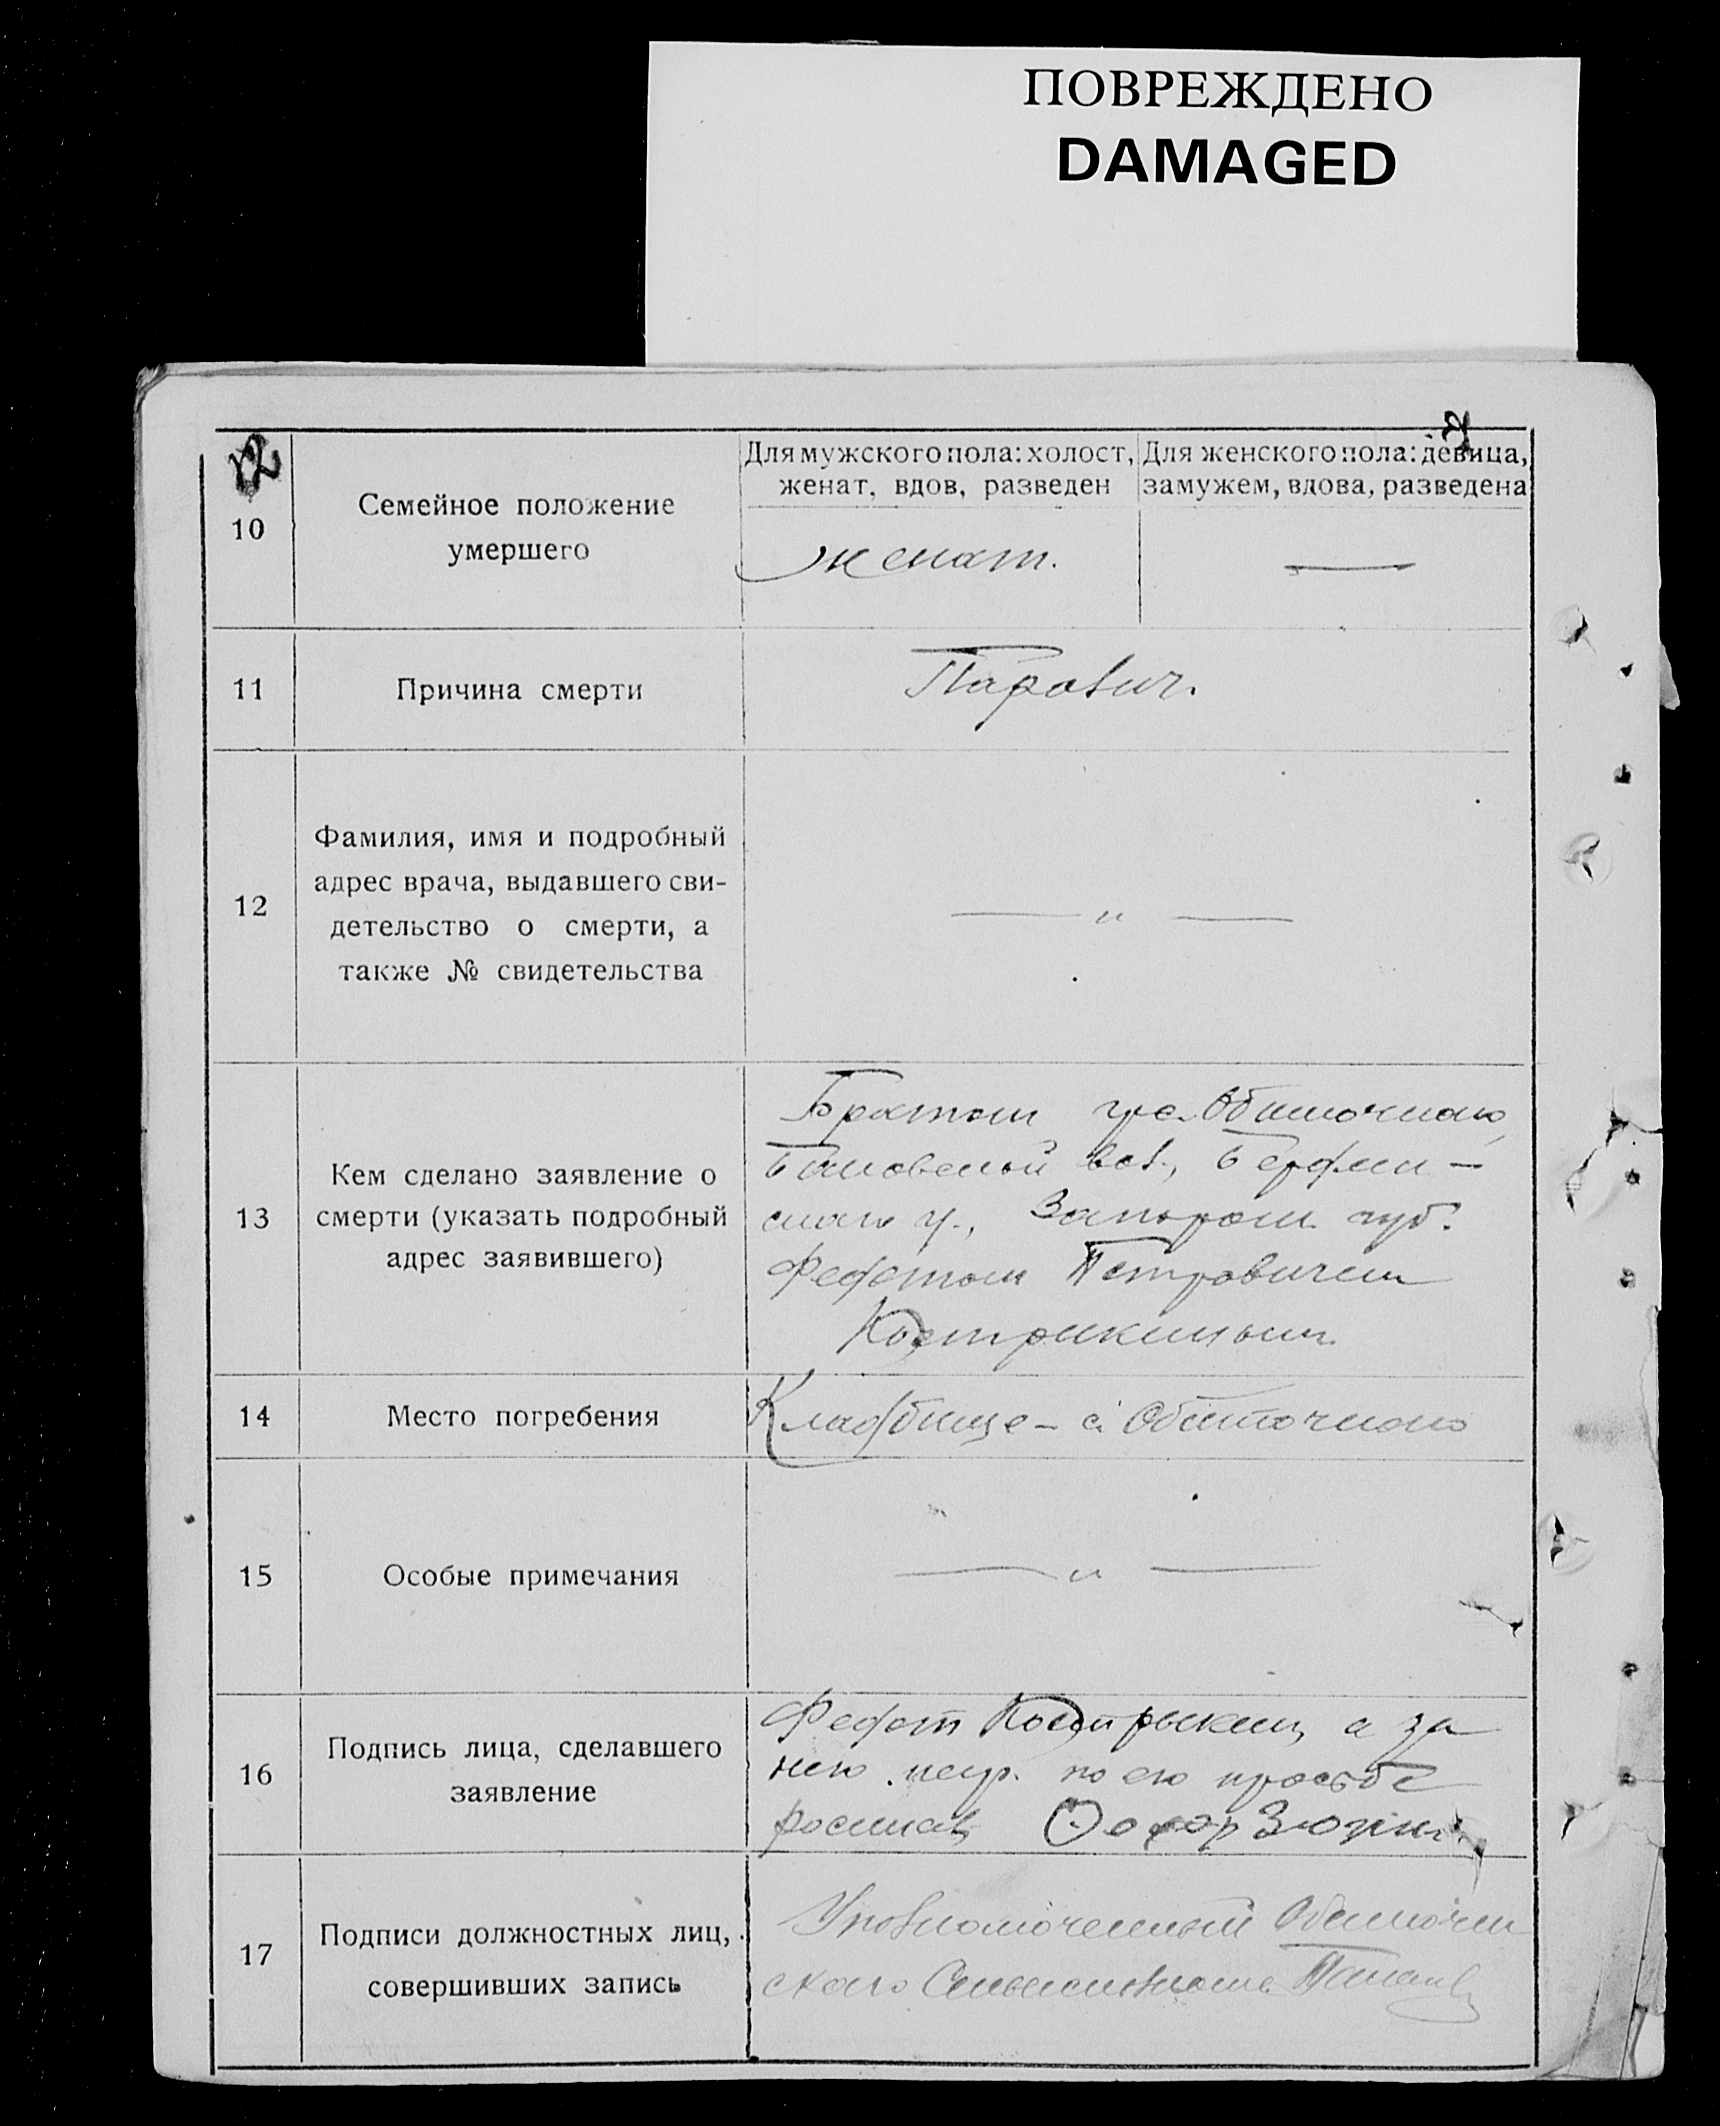 ПОВРЕЖДЕНО
DAMAGED
12
10
Семейное положение
умершего
Для мужского пола: холост,
женат, вдов, разведен
Для женского пола: девица,
замужем, вдова, разведена
женат.
—
11
Причина смерти
12
Фамилия, имя и подробный
адрес врача, выдавшего сви-
детельство о смерти, а
также № свидетельства
— „ —
13
Кем сделано заявление о
смерти (указать подробный
адрес заявившего)
Братом гр. с. Обиточного
вол., Бердян-
ского у., Запорож. губ.
Федотом Петровичем
Кострикиным
14
Место погребения
Кладбище – с. Обиточного
15
Особые примечания
— „ —
16
Подпись лица, сделавшего
заявление
Федот Кострыкин, а за
него негр. по его просьбе
росписался
17
Подписи должностных лиц,
совершивших запись
Уполномоченный Обиточен
ского